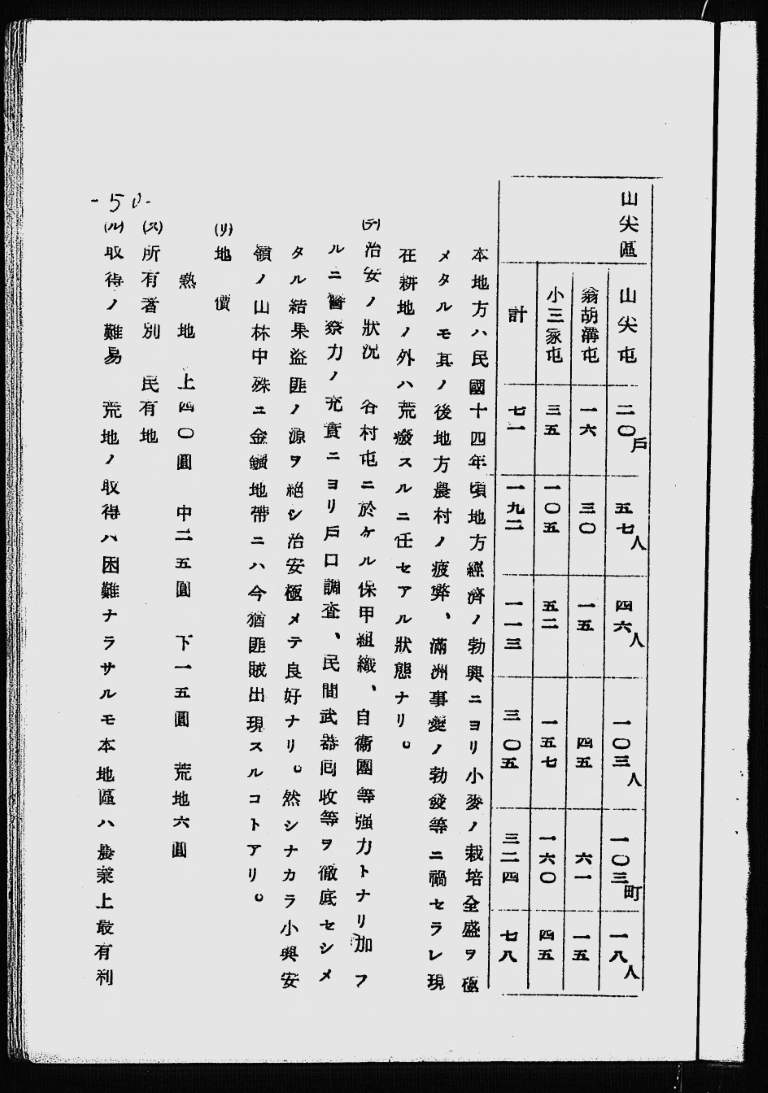 山尖區
山尖屯 二〇戶 五七人 四六人 一〇三人 一〇三町 一八人
翁胡溝屯 一六 三〇 一五 四五 六一 一五
小三家屯 三五 一〇五 五二 一五七 一六〇 四五
計 七一 一九二 一一三 三〇五 三二四 七八
本地方ハ民國十四年頃地方經濟ノ勃興ニヨリ小麥ノ栽培全盛ヲ極
メタルモ其ノ後地方農村ノ疲弊、滿洲事變ノ勃發等ニ禍セラレ現
在耕地ノ外ハ荒廢スルニ任セアル狀態ナリ。
(チ)治安ノ狀況 谷村屯ニ於ケル保甲組織、自衞團等强力トナリ加フ
ルニ警察力ノ充實ニヨリ戶口調査、民間武器回收等ヲ徹底セシメ
タル結果盜匪ノ源ヲ絕シ治安極メテ良好ナリ。然シナカラ小興安
嶺ノ山林中殊ニ金鑛地帶ニハ今猶匪賊出現スルコトアリ。
(リ)地價
熟地 上四〇圓 中二五圓 下一五圓 荒地六圓
(ヌ)所有者別 民有地
(ル)取得ノ難易 荒地ノ取得ハ困難ナラサルモ本地區ハ農業上最有利
-50-